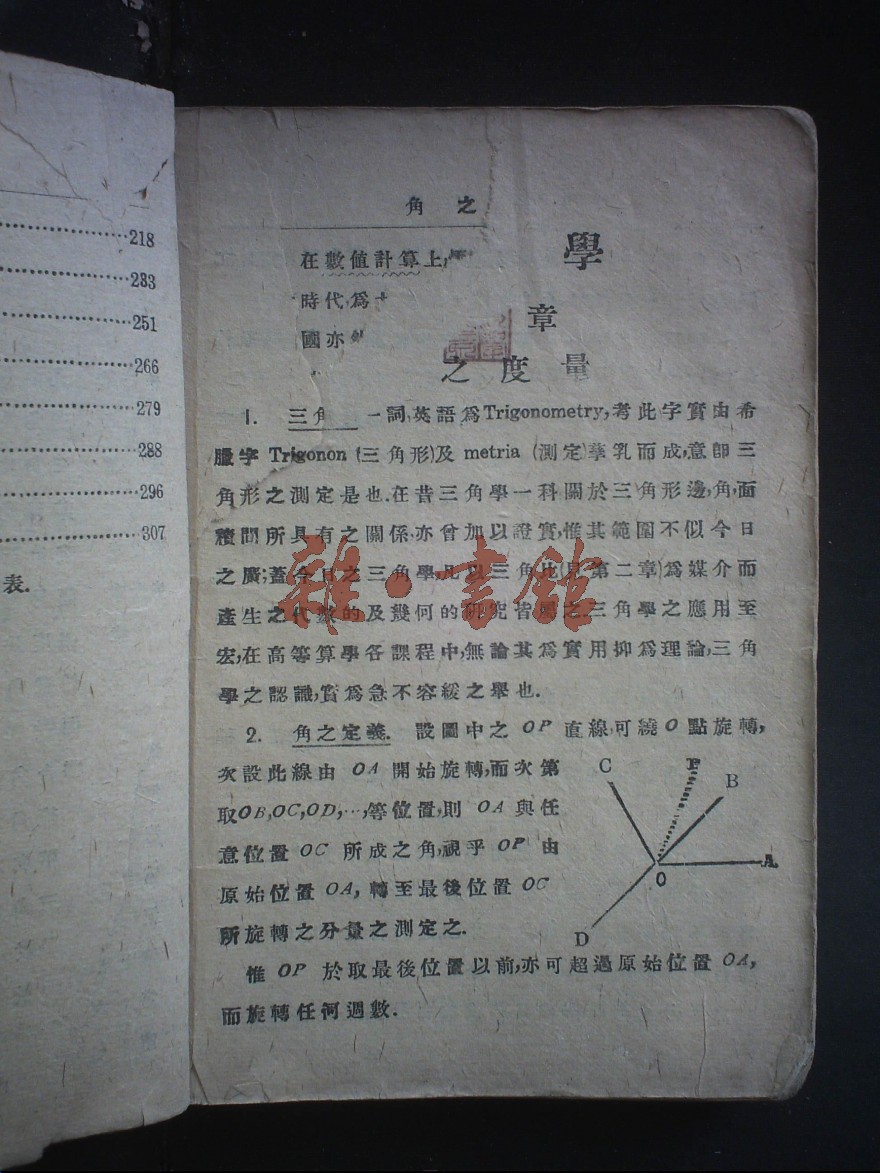 218
233
251
266
279
288
296
307
表.
角之
在數值計算上,
時代,爲十
國亦
學
章
之度量
1. 三角 一詞,英語爲Trigonometry,考此字實由希
臘字 Trigonon (三角形)及 metria (測定)孳乳而成,意卽三
角形之測定是也.在昔三角學一科關於三角形邊,角,面
積間所具有之關係,亦曾加以證實,惟其範圍不似今日
之廣;蓋今日之三角學,凡以三角比(見第二章)爲媒介而
產生之代數的及幾何的研究皆屬之.三角學之應用至
宏,在高等算學各課程中,無論其爲實用抑爲理論,三角
學之認識,實爲急不容緩之舉也.
2. 角之定義. 設圖中之 OP 直線,可繞O點旋轉,
次設此線由 OA 開始旋轉,而次第
取OB,OC,OD,…,等位置,則 OA 與任
意位置 OC 所成之角,視乎 OP 由
原始位置 OA, 轉至最後位置 OC
所旋轉之分量之測定之.
C P B
O A
D
惟 OP 於取最後位置以前,亦可超過原始位置 OA,
而旋轉任何週數.
雜·書館